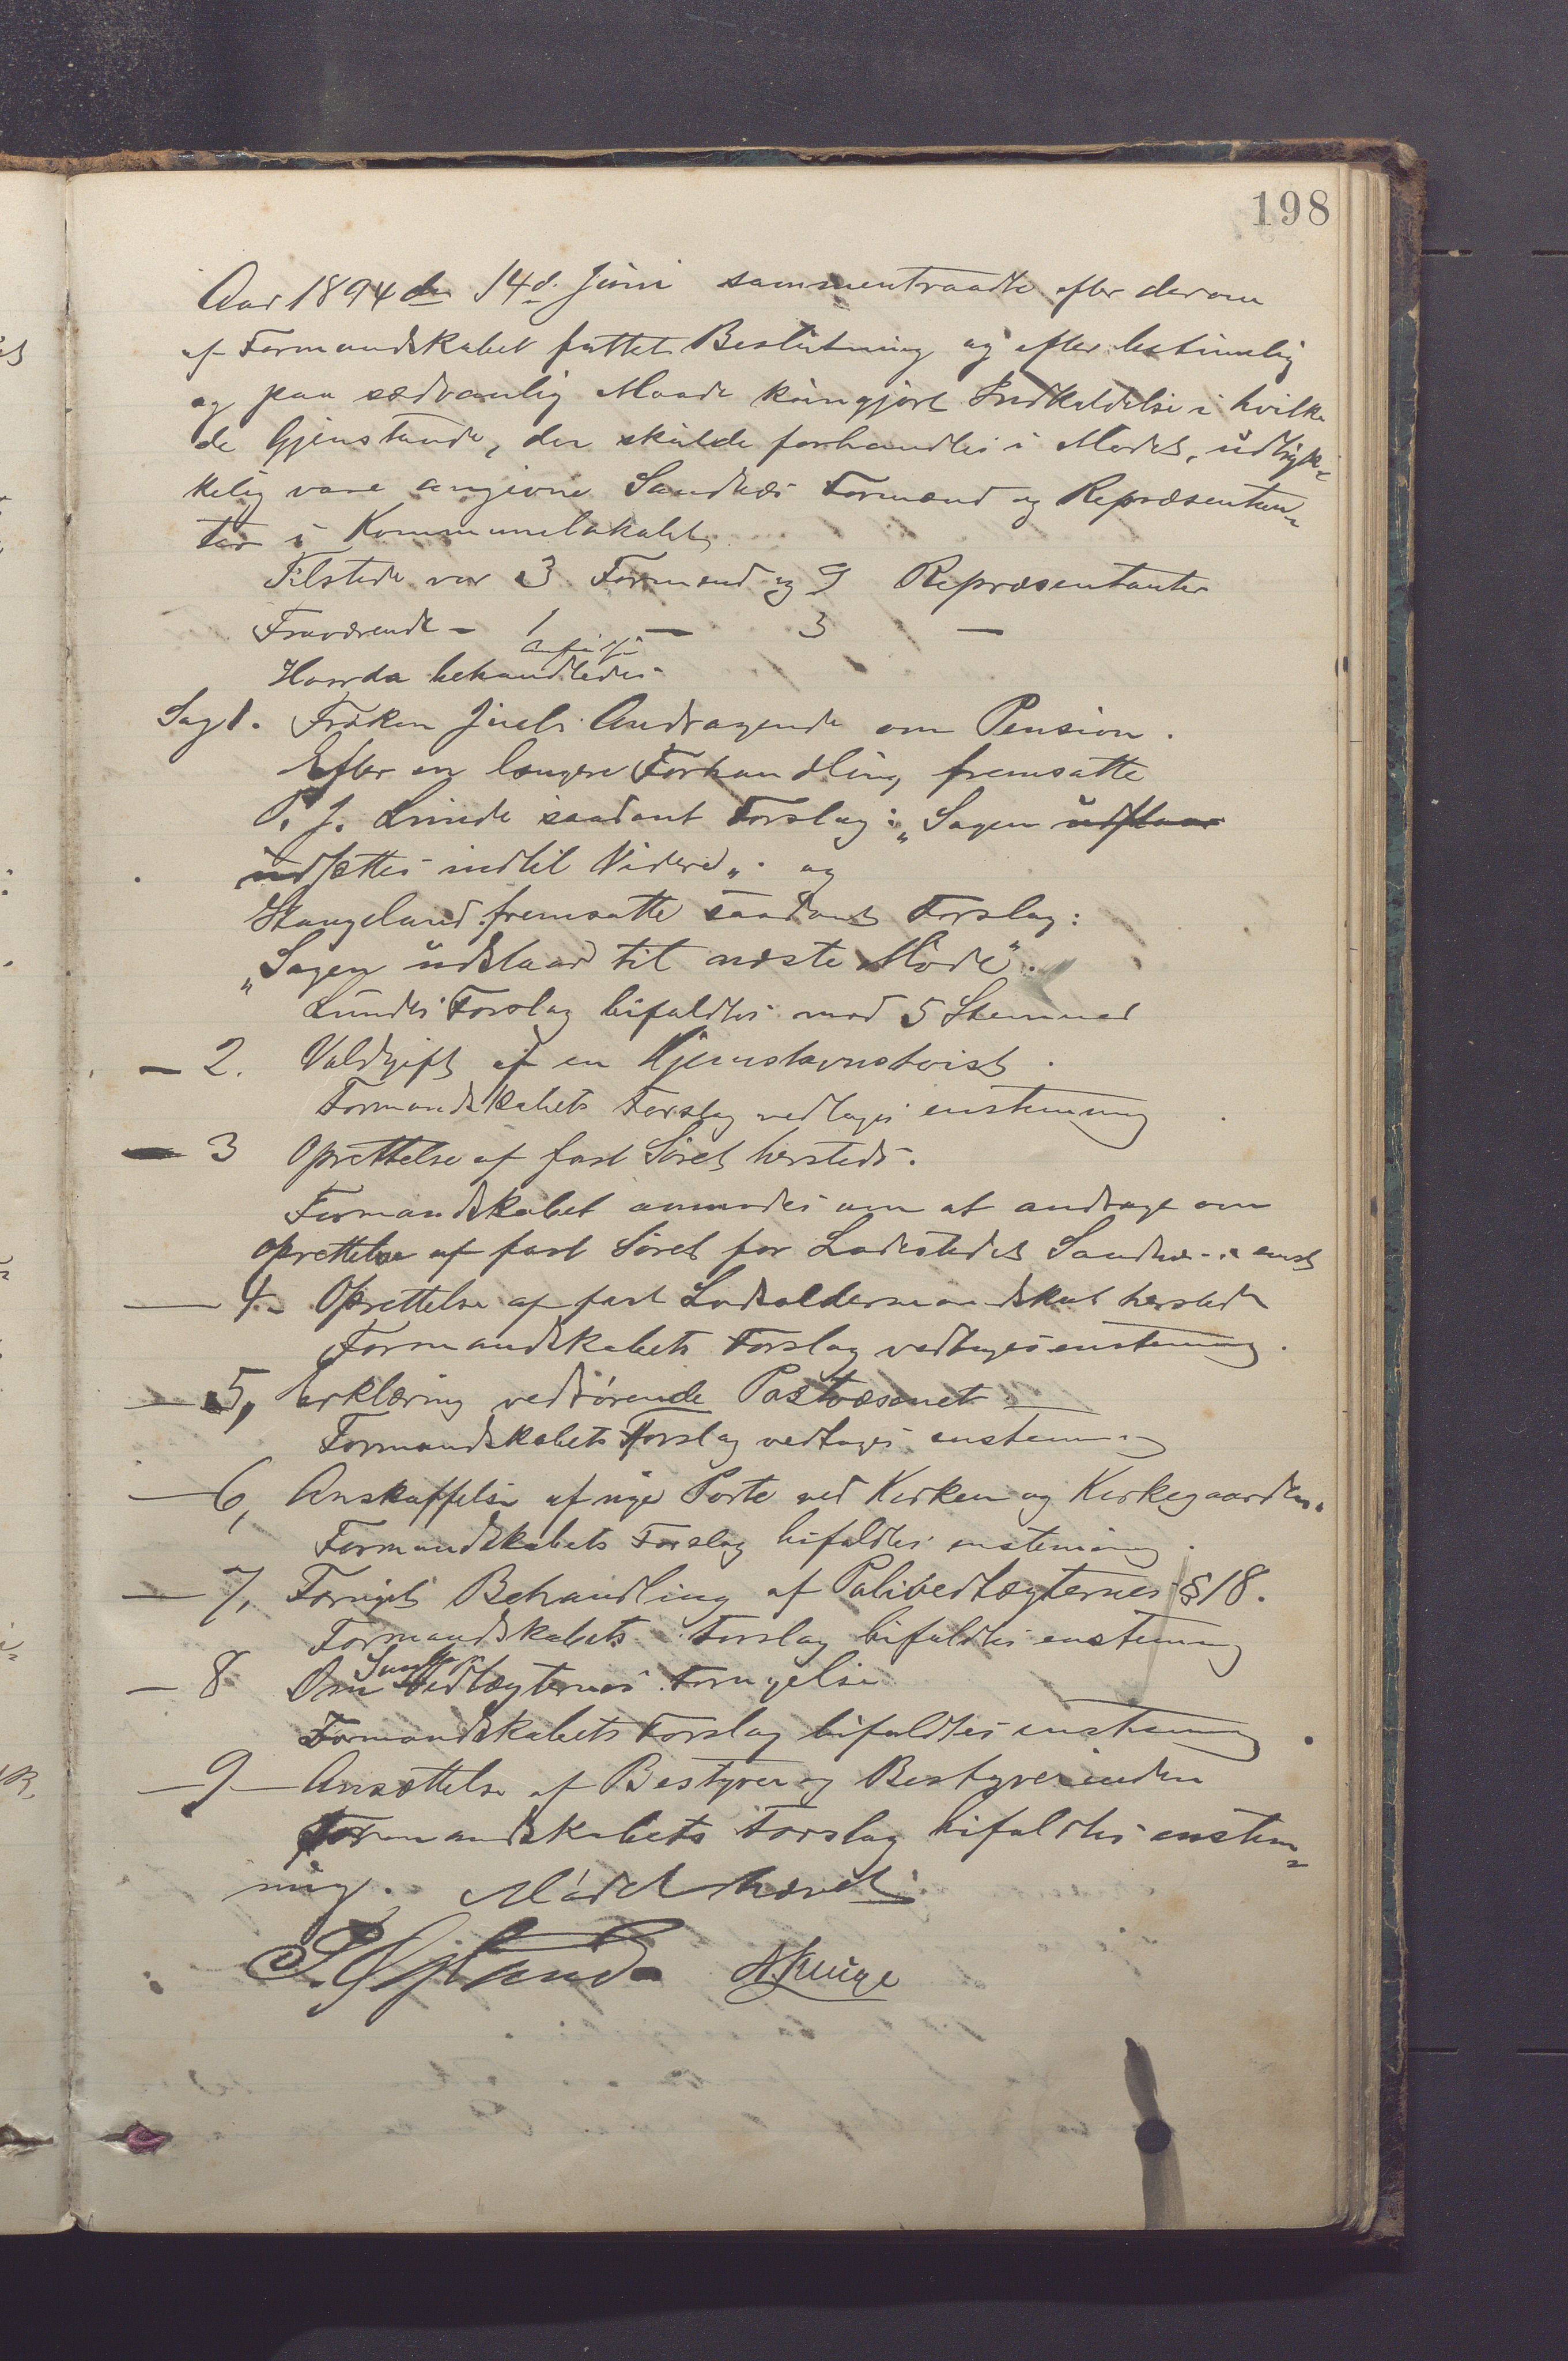 198
Aar 1894 den 14d. Juni sammentraadte efter derom
af Formandskabet fattet Beslutning og efter betimelig
og paa sædvanlig Maade kundgjort Indkaldelse i hvilke
de Gjenstande, der skulde forhandles i Mødet, udtryk-
kelig vare angivne Sandnæs Formænd og Repræsentan-
ter i Kommunelokalet.
Tilstede var 3 Formænd og 9 Repræsentanter
Fraværende - 1 — 3 —
Hvorda behandledes
Sag 1. Frøken Juels Andragende om Pension.
Efter en længere Forhandling fremsatte
P. J. Lunde saadant Forslag: „Sagen udstaar
udsættes indtil Videre„ og
Stangeland fremsatte saadant Forslag:
„Sagen udstaar til næste Møde".
Lundes Forslag bifaldtes mod 5 Stemmer
— 2. Voldgift af en Hjemstavnstvist.
Formandskabets Forslag vedtages enstemmig
— 3 Oprettelse af fast Søret hersteds.
Formandskabet anmodes om at andrage om
oprettelse af fast Søret for Ladestedet Sandnæs. enst
— 4. Oprettelse af fast Lodsoldermandskab hersteds
Formandskabets Forslag vedtages enstemmig.
— 5, Erklæring vedrørende Postvæsenet
Formandskabets Forslag vedtages enstemmig
— 6, Anskaffelse af nye Porte ved Kirken og Kirkegaarden.
Formandskabets Forslag bifaldtes enstemmig.
— 7, Fornyet Behandling af Politivedtægternes § 18.
Formandskabets Forslag bifaldtes enstemmig
— 8 Om Vedtægternes Fornyelse
Formandskabets Forslag bifaldtes enstemmig.
— 9 — Ansættelse af Bestyrer og Bestyrerinden
Formandskabets Forslag bifaldtes enstem-
mig. Mødet hævet.